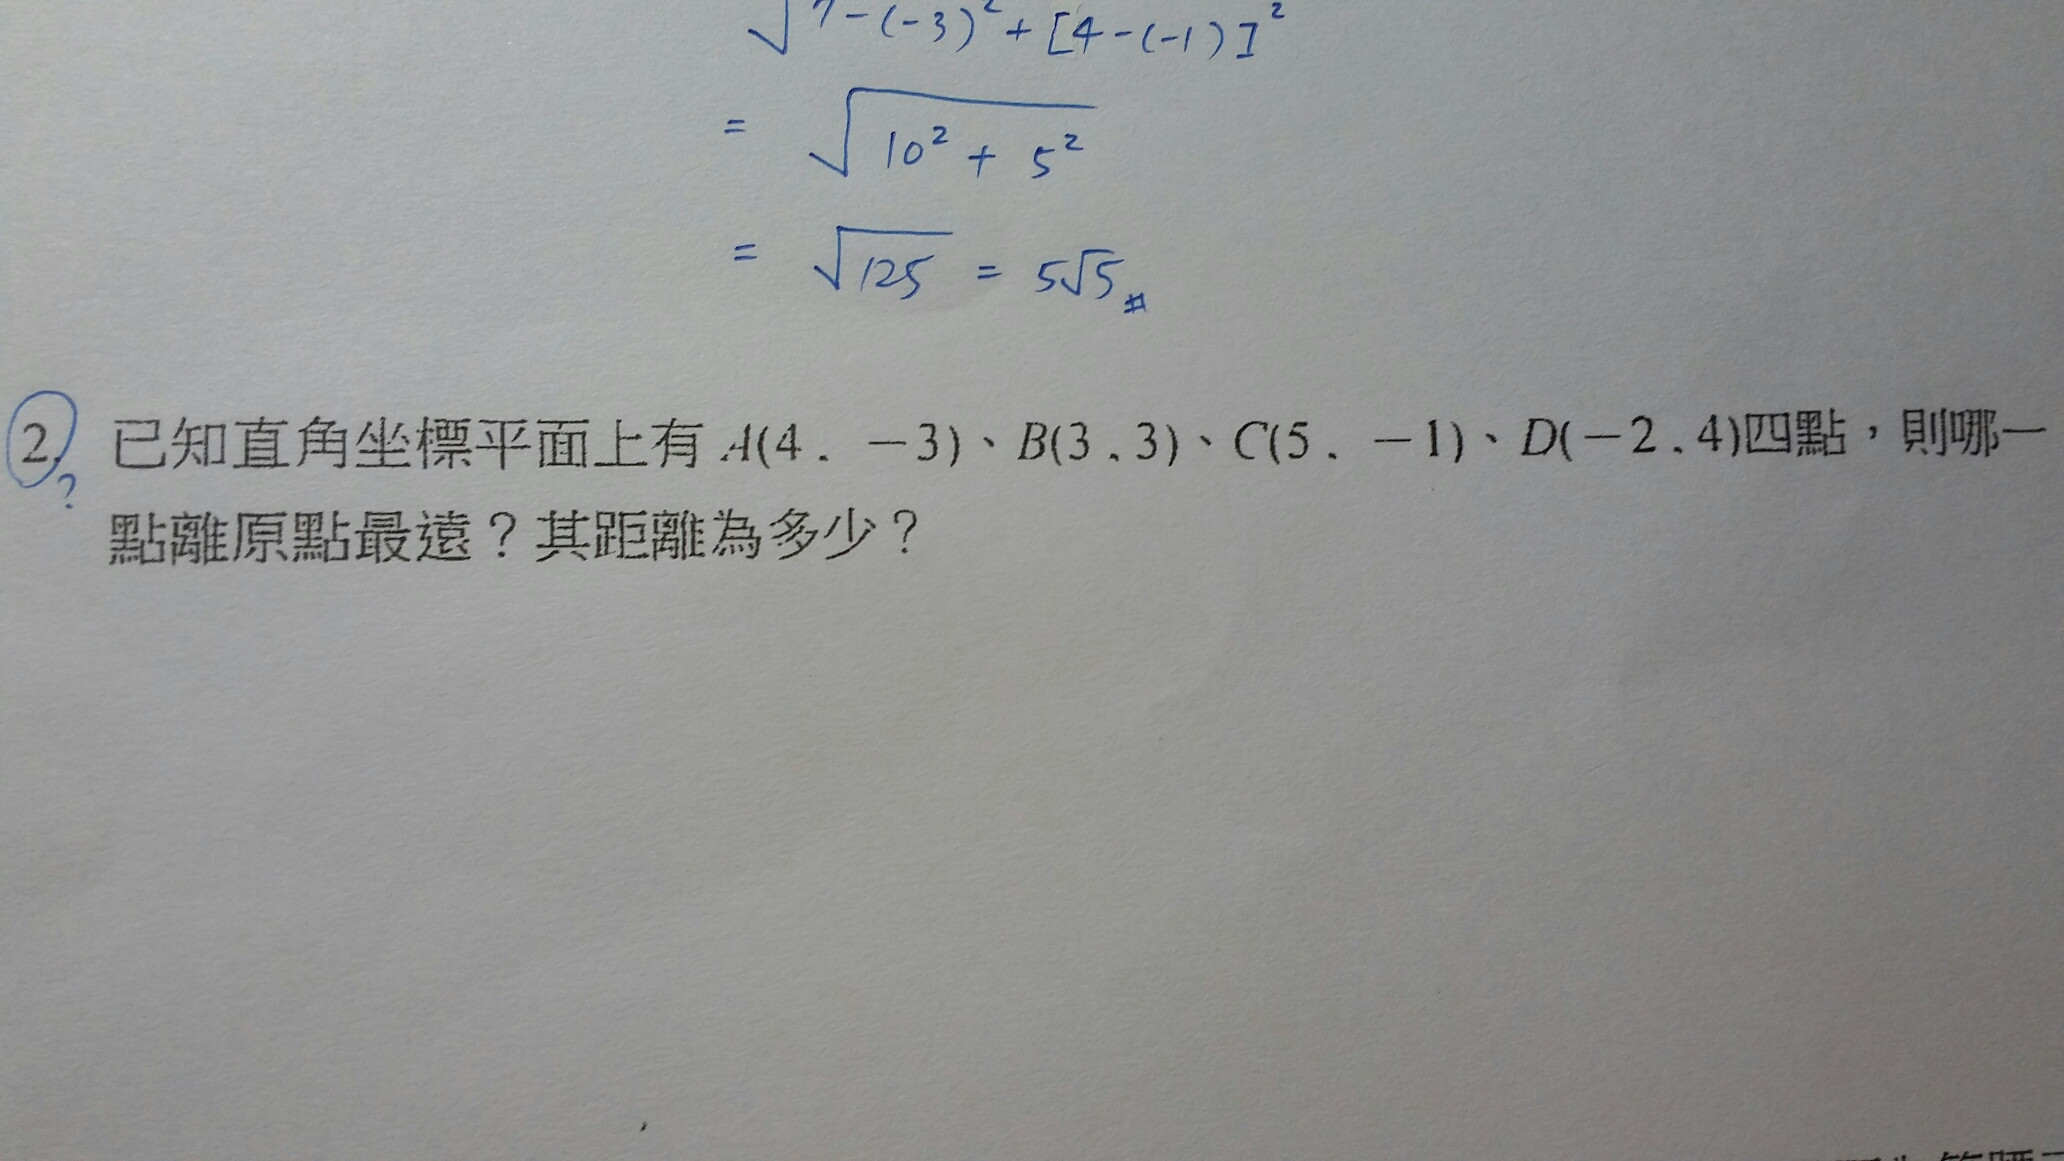 √7-(-3)²+[4-(-1)]²
= √10²+5²
= √125 = 5√5#
2. 已知直角坐標平面上有 A(4、-3)、B(3、3)、C(5、-1)、D(-2、4)四點，則哪一
?
點離原點最遠？其距離為多少？